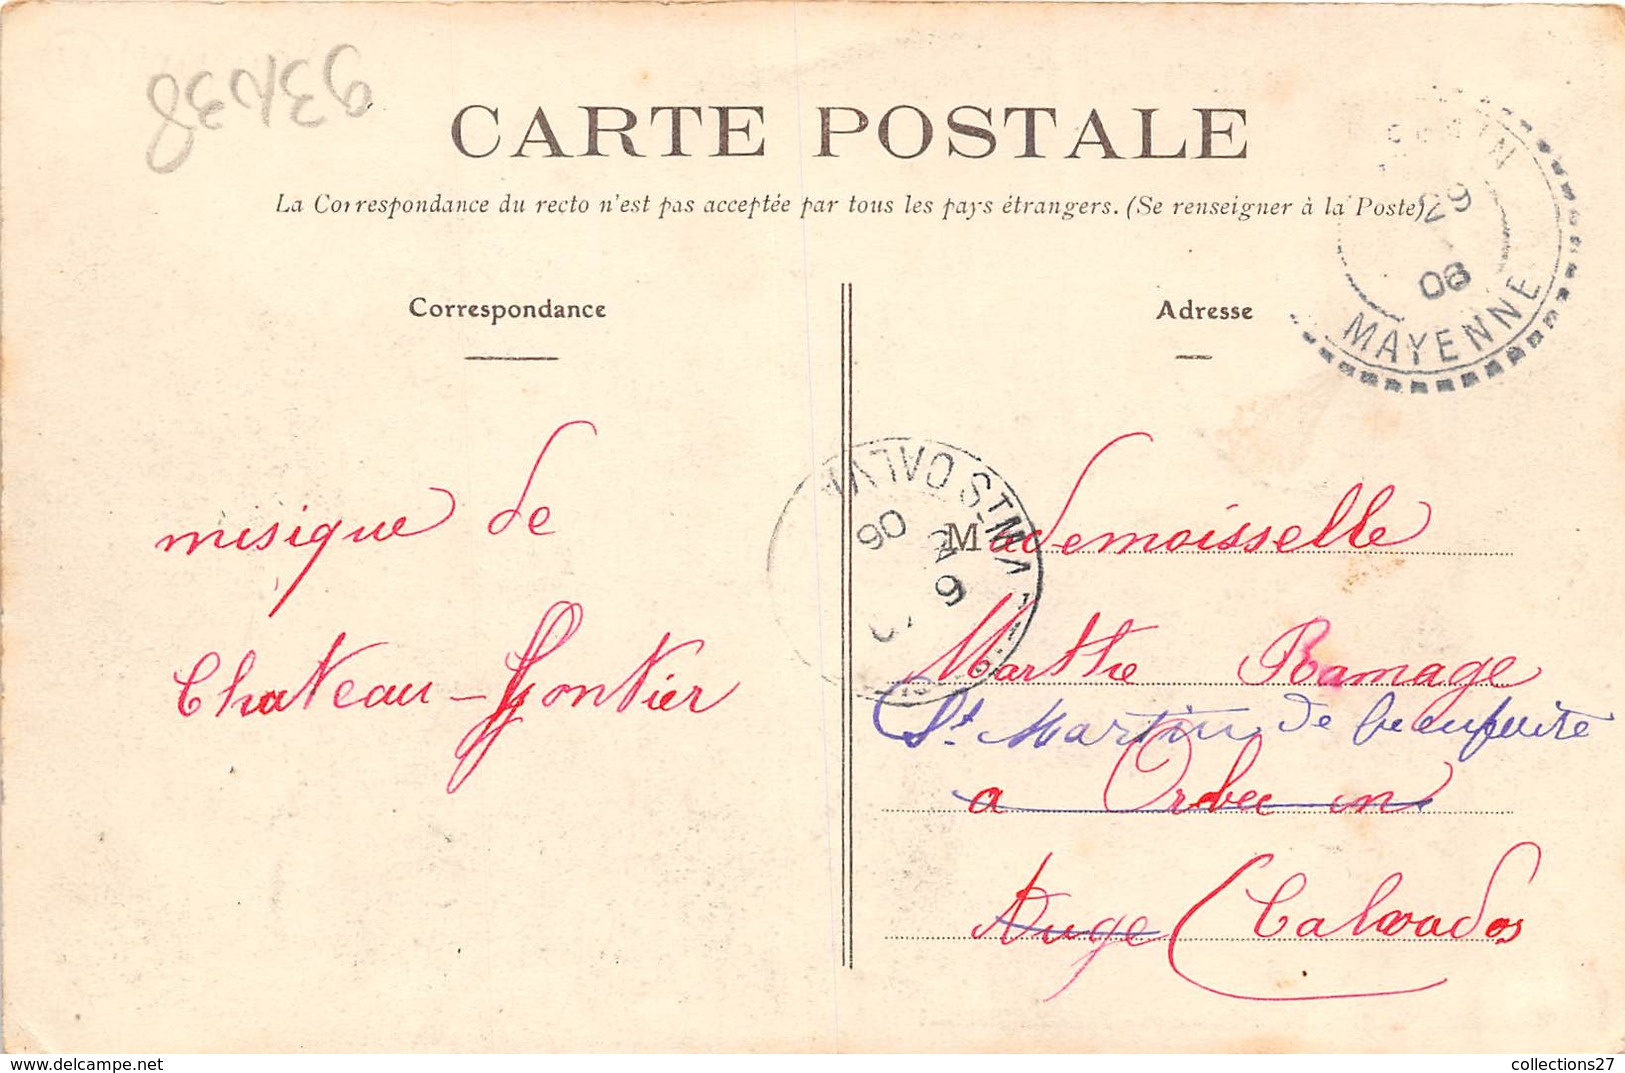 93N38
CARTE POSTALE
La Correspondance du recto n'est pas acceptée par tous les pays étrangers. (Se renseigner à la Poste)
29
06
MAYENNE
Correspondance
Adresse
misique de
Chateau-Gontier
CALVA
ST MA
06
Mademoisselle
Marthe Ramage
St Martin de
a Orbec en
Auge (Calvados
collections27